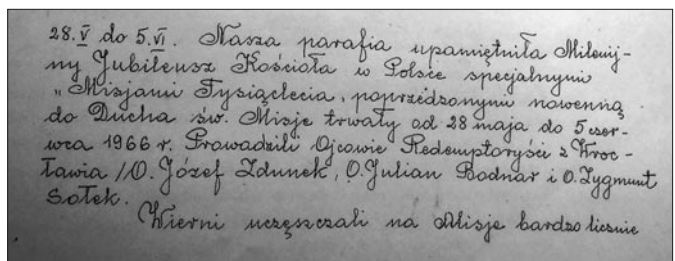 28.V do 5.VI. Nasza parafia upamiętniła Milenij-
ny Jubileusz Kościoła w Polsce specjalnymi
„Misjami Tysiąclecia, poprzedzonymi nowenną
do Ducha św. Misje trwały od 28 maja do 5 czer-
wca 1966 r. Prowadzili Ojcowie Redemptoryści z Wroc-
ławia /O. Józef Zdunek, O. Julian Bodnar i O. Zygmunt
Sołek.
Wierni uczęszczali na Misje bardzo licznie